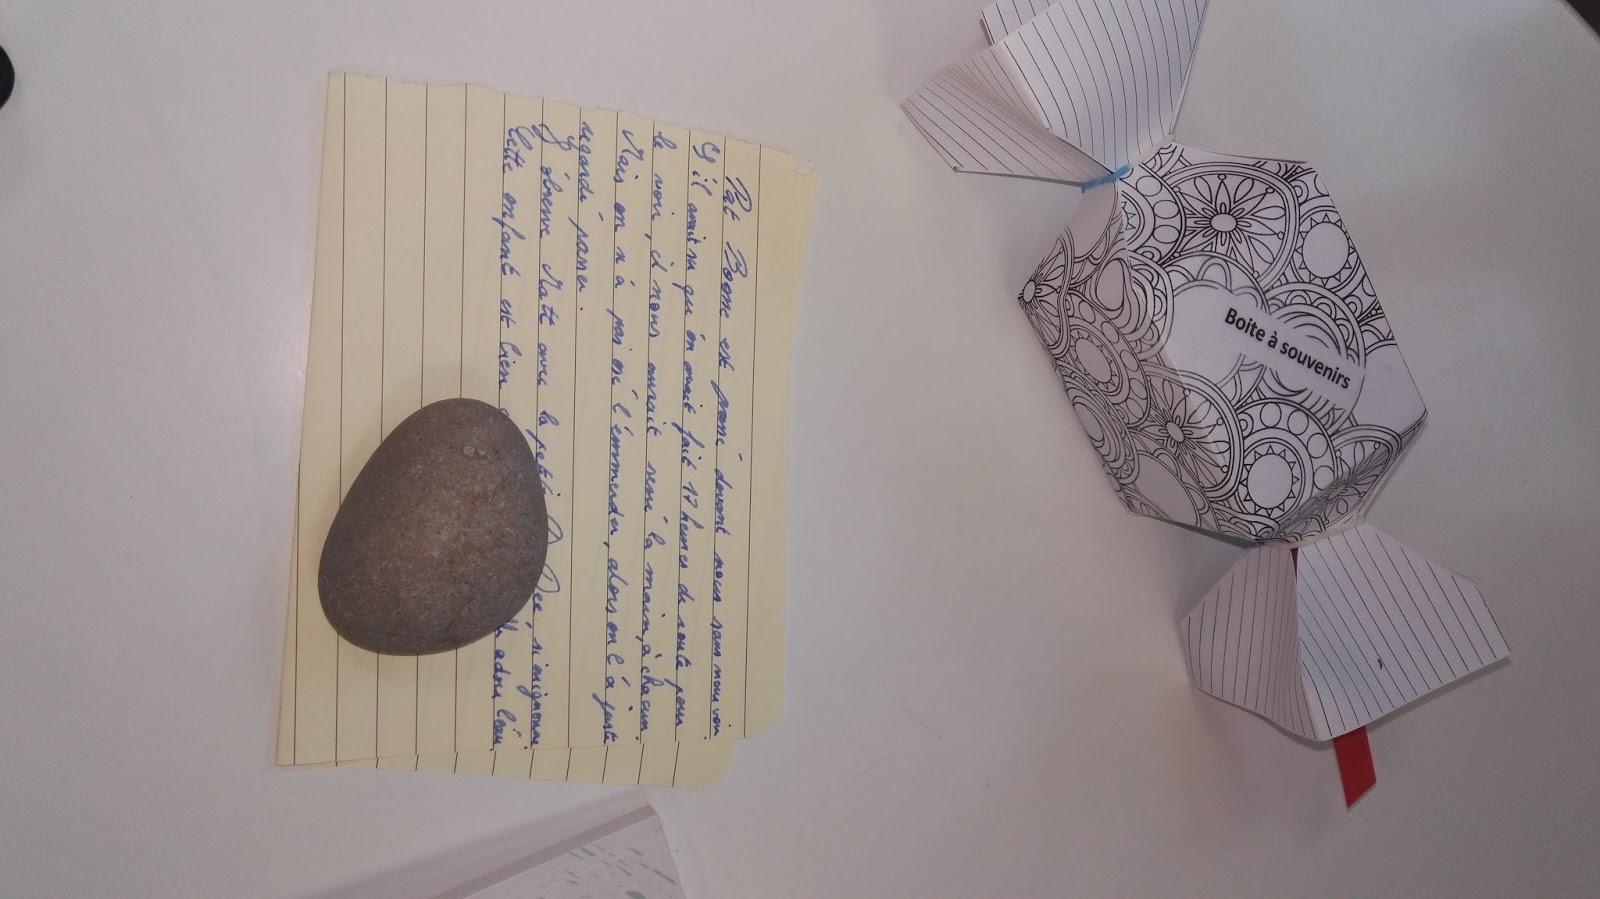 Pat Boone est passé devant nous sans nous voir
S'il avait su qu'on avait fait 17 heures de route pour
le voir, il nous aurait serré la main, à chacun.
Mais on n'a pas osé l'emmerder, alors on l'a juste
regardé passer.
J'observe Matt avec la petite Dee si mignonne
Cette enfant est bien adora
Boite à souvenirs